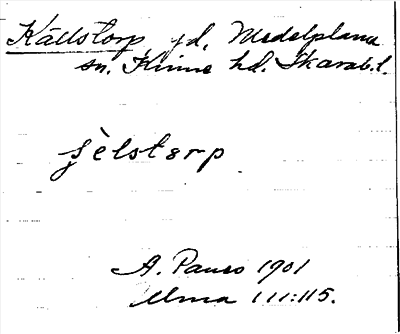 Källstorp jd, Medelplana
sn. Kinne hd. Skarab.l.
sèlstɘrp
A. Pauss 1901
Ulma 111:115.